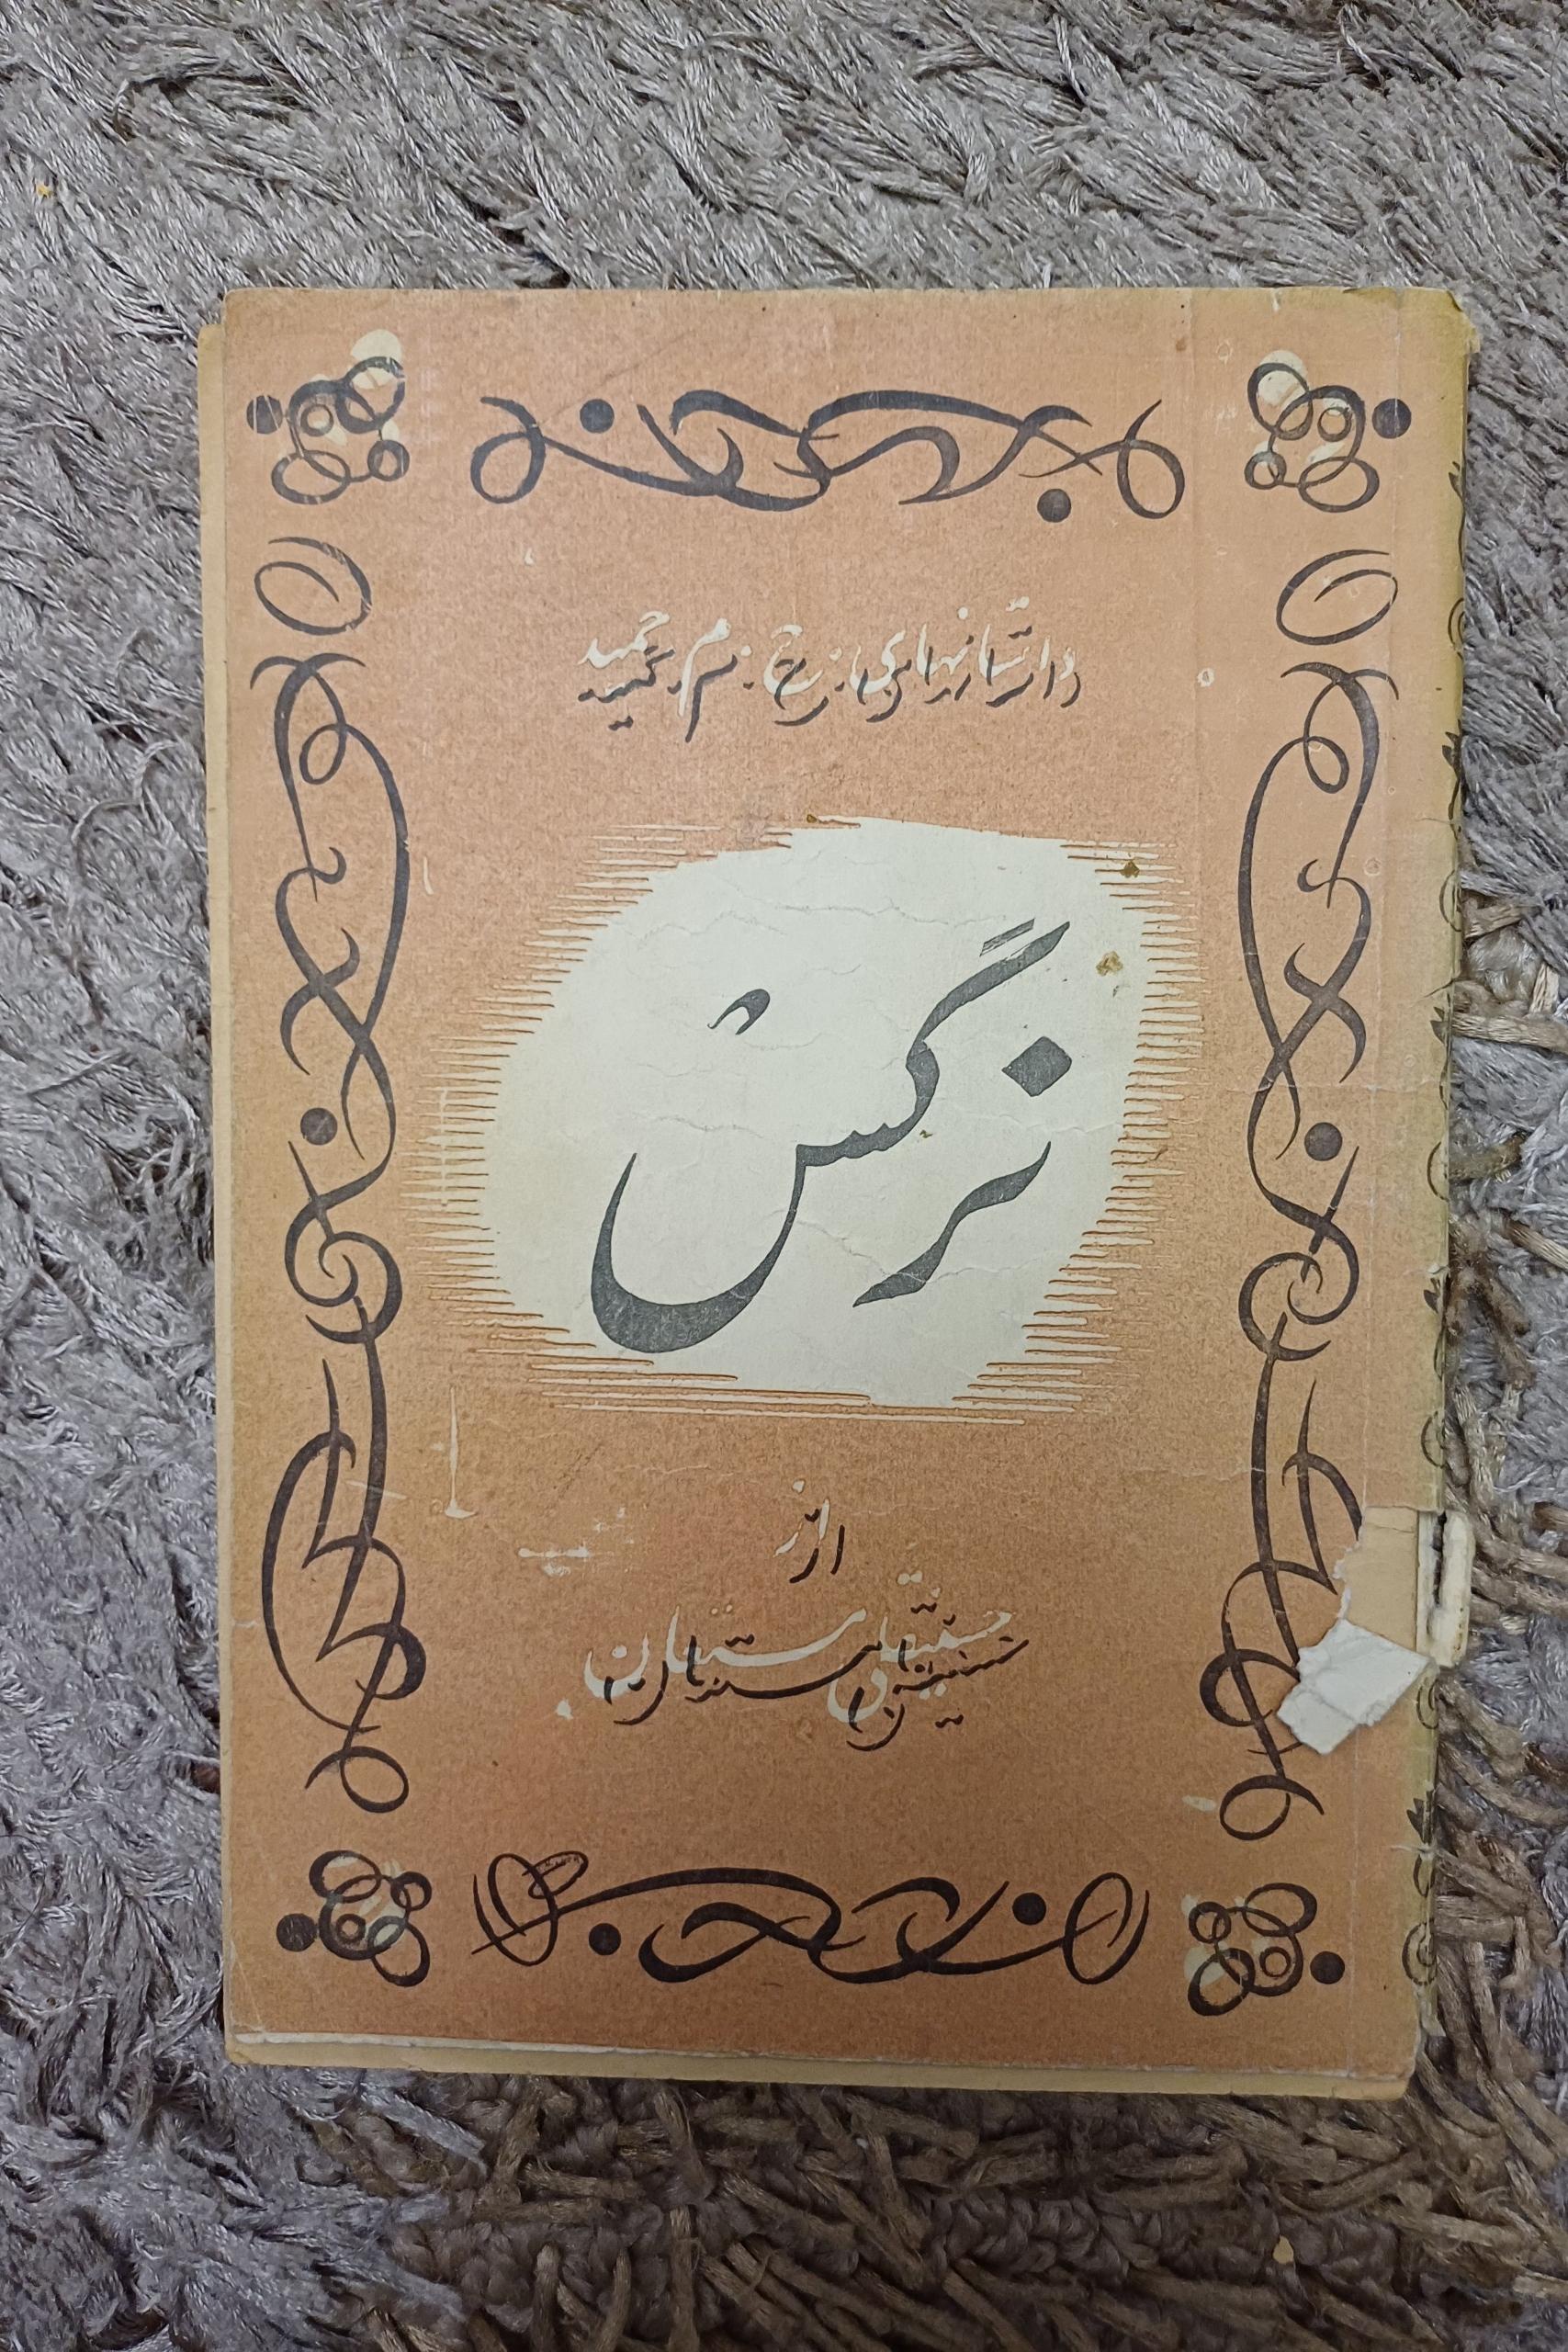 داستانهای: ح: م. حمید
نرگس
از
حسینقلی مستعان